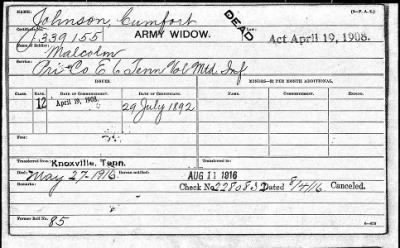 Johnson, Cumfort
DEAD
1339155 ARMY WIDOW. Act April 19, 1908.
Malcolm
Service: Pri Co E 6 Tenn Vol Mtd Inf
ISSUES MINORS—$2 PER MONTH ADDITIONAL.
CLASS. RATE. DATE OF COMMENCEMENT. DATE OF CERTIFICATE. NAME. COMMENCEMENT. ENDING.
12 April 19, 1908. 29 July 1892
Transferred from Knoxville, Tenn. Transferred to
Died May 27-1916 Bureau notified AUG 11 1916
Remarks: Check No 2280832 Dated 8/4/16 Canceled.
Former Roll No.
85